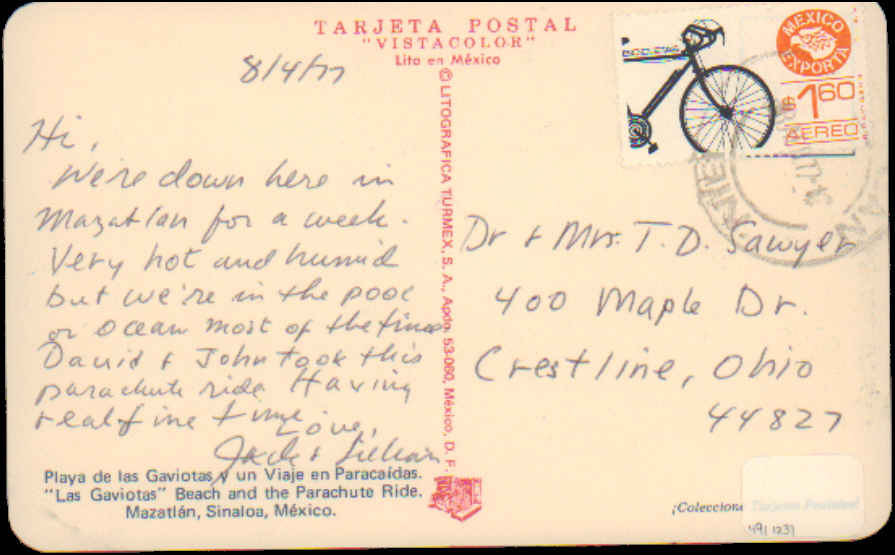 TARJETA POSTAL
"VISTACOLOR"
Lito en México
8/4/77
Hi,
We're down here in
Mazatlan for a week.
Very hot and humid
but we're in the pool
or ocean most of the time
David & John took this
parachute ride. Having
real fine time.
Love,
Jack & Lillian
Playa de las Gaviotas y un Viaje en Paracaídas.
"Las Gaviotas" Beach and the Parachute Ride.
Mazatlán, Sinaloa, México.
© LITOGRAFICA TURMEX, S. A., Apdo. 53-060, México, D. F.
BICICLETAS
MEXICO
EXPORTA
$1.60
AEREO
Dr & Mrs. T. D. Sawyer
400 Maple Dr.
Crestline, Ohio
44827
¡Coleccione Tarjetas Postales!
491 1231